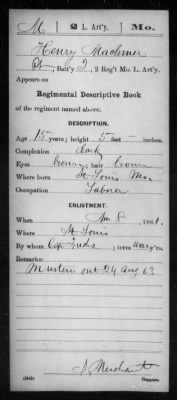 M | 2 L. Art'y. | Mo.
Henry Machmer
Pt., Batt'y I, 2 Reg't Mo. L. Art'y.
Appears on
Regimental Descriptive Book
of the regiment named above.
DESCRIPTION.
Age 18 years; height 5 feet - inches.
Complexion dark
Eyes brown; hair brown
Where born St. Louis Mo
Occupation Laborer
ENLISTMENT.
When Nov 8, 1861.
Where St. Louis
By whom Cap ; term years.
Remarks:
Muster out 24 Aug 63
Merchant
Copyist.